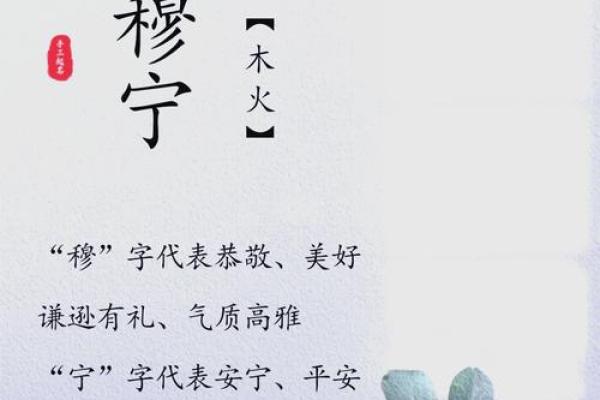 穆宁
【木火】
手工起名
“穆”字代表恭敬、美好
谦逊有礼、气质高雅
“宁”字代表安宁、平安